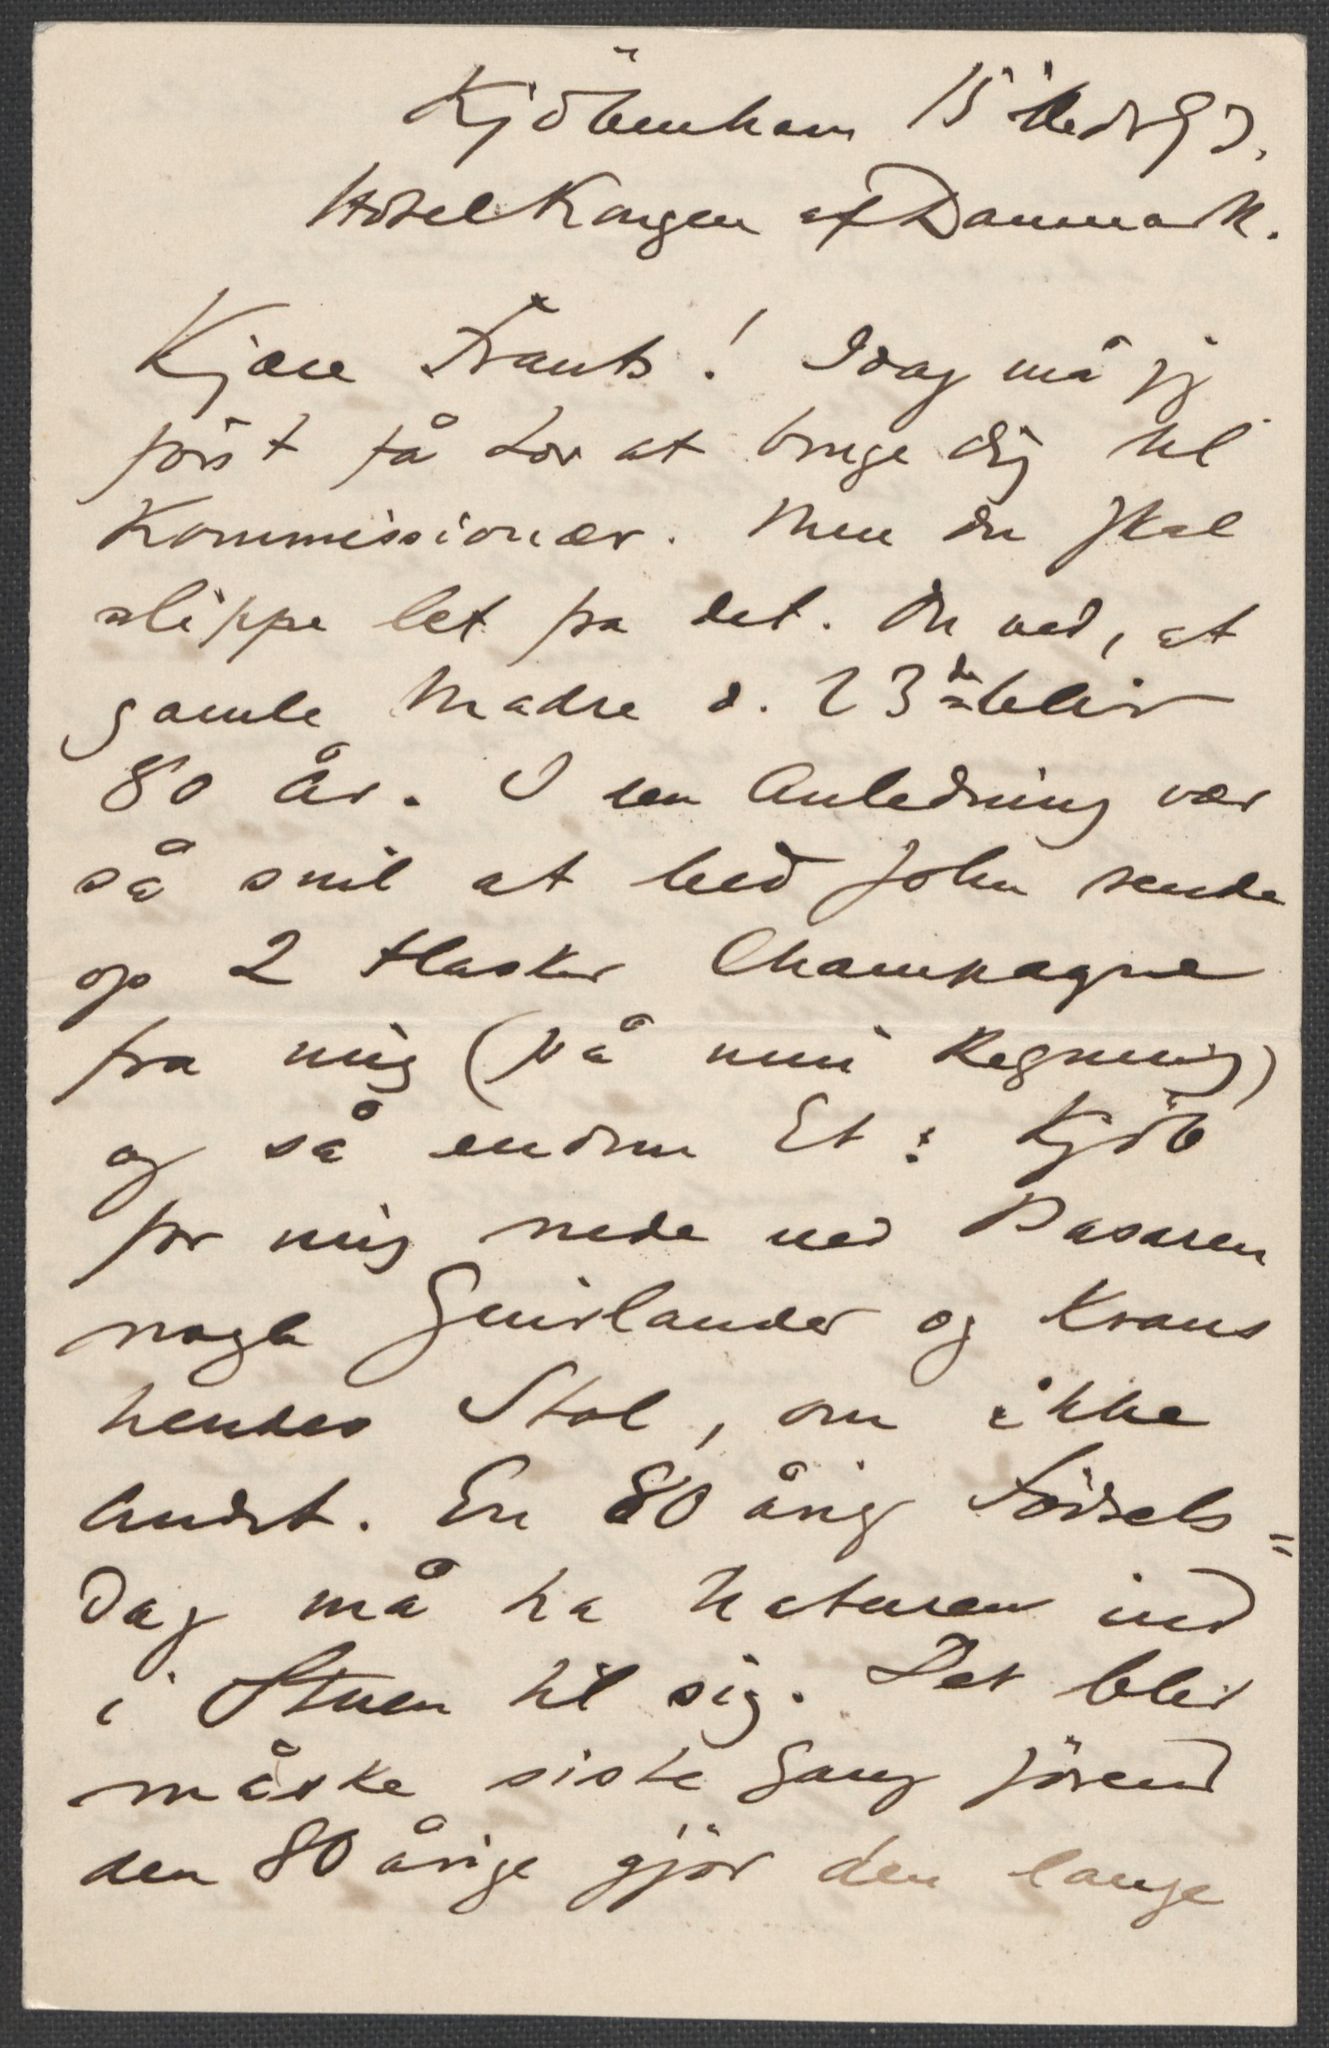 Kjöbenhavn 15 Kedr 93.
Hotel Kongen af Danmark.
Kjære Frants! Idag må jeg
först få Lov at bruge dig til
Kommissionær. Men du skal
slippe let fra det. Du ved, at
gamle Madre d. 23de blir
80 År. I den Anledning vær
så snil at bed John sende
op 2 Flasker Champagne
fra mig (på min Regning)
og så endnu Et: Kjöb
for mig nede ved Basaren
nogle Guirlander og Krans
hendes Stol, om ikke
Andet. En 80 årig Födsels=
Dag må ha Naturen ind
i Stuen til sig. Det blir
måske siste Gang förend
den 80 årige gjör den lange